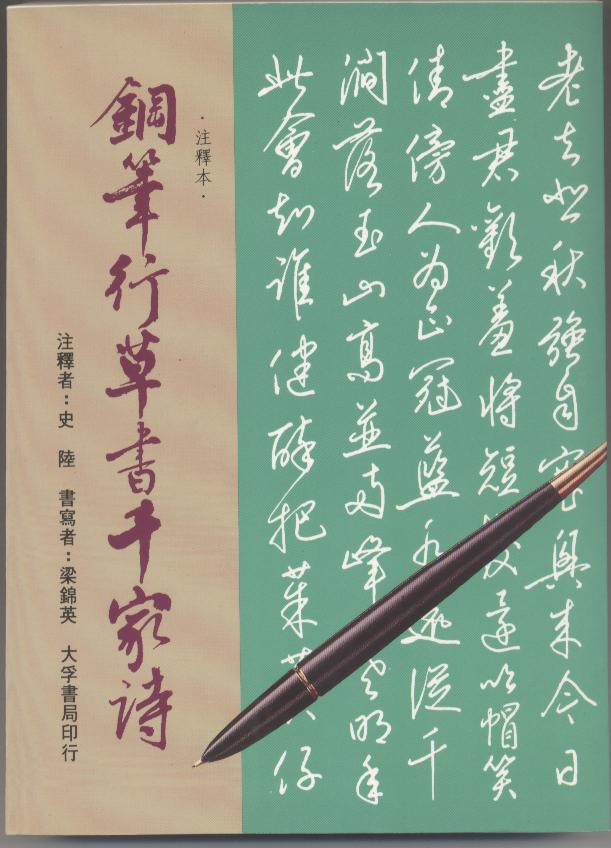 老去悲秋強自寬興來今日
盡君歡羞將短髮還吹帽笑
倩傍人為正冠藍水遠從千
澗落玉山高並兩峰寒明年
此會知誰健醉把茱萸仔
·注釋本·
鋼筆行草書千家詩
注釋者：史 陸 書寫者：梁錦英 大孚書局印行